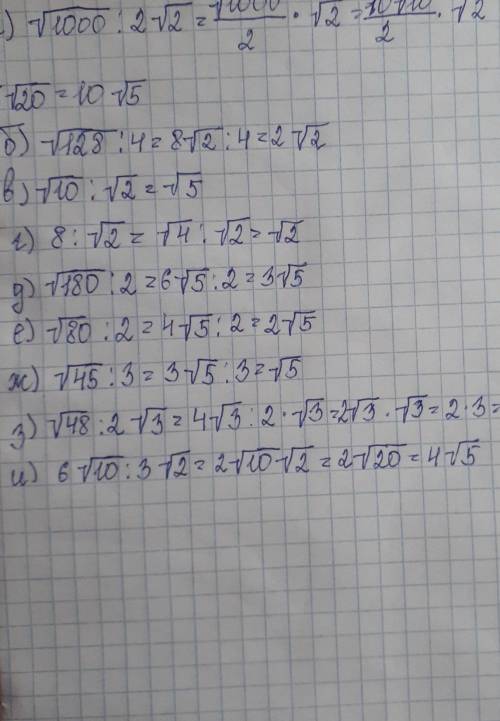 ) √1000 : 2√2 = √1000/2 · √2 = 10√10/2 · √2
√20 = 10√5
б) √128 : 4 = 8√2 : 4 = 2√2
в) √10 : √2 = √5
г) 8 : √2 = √4 : √2 = √2
д) √180 : 2 = 6√5 : 2 = 3√5
е) √80 : 2 = 4√5 : 2 = 2√5
ж) √45 : 3 = 3√5 : 3 = √5
з) √48 : 2√3 = 4√3 : 2 · √3 = 2√3 · √3 = 2 · 3 =
и) 6√10 : 3√2 = 2√10 · √2 = 2√20 = 4√5